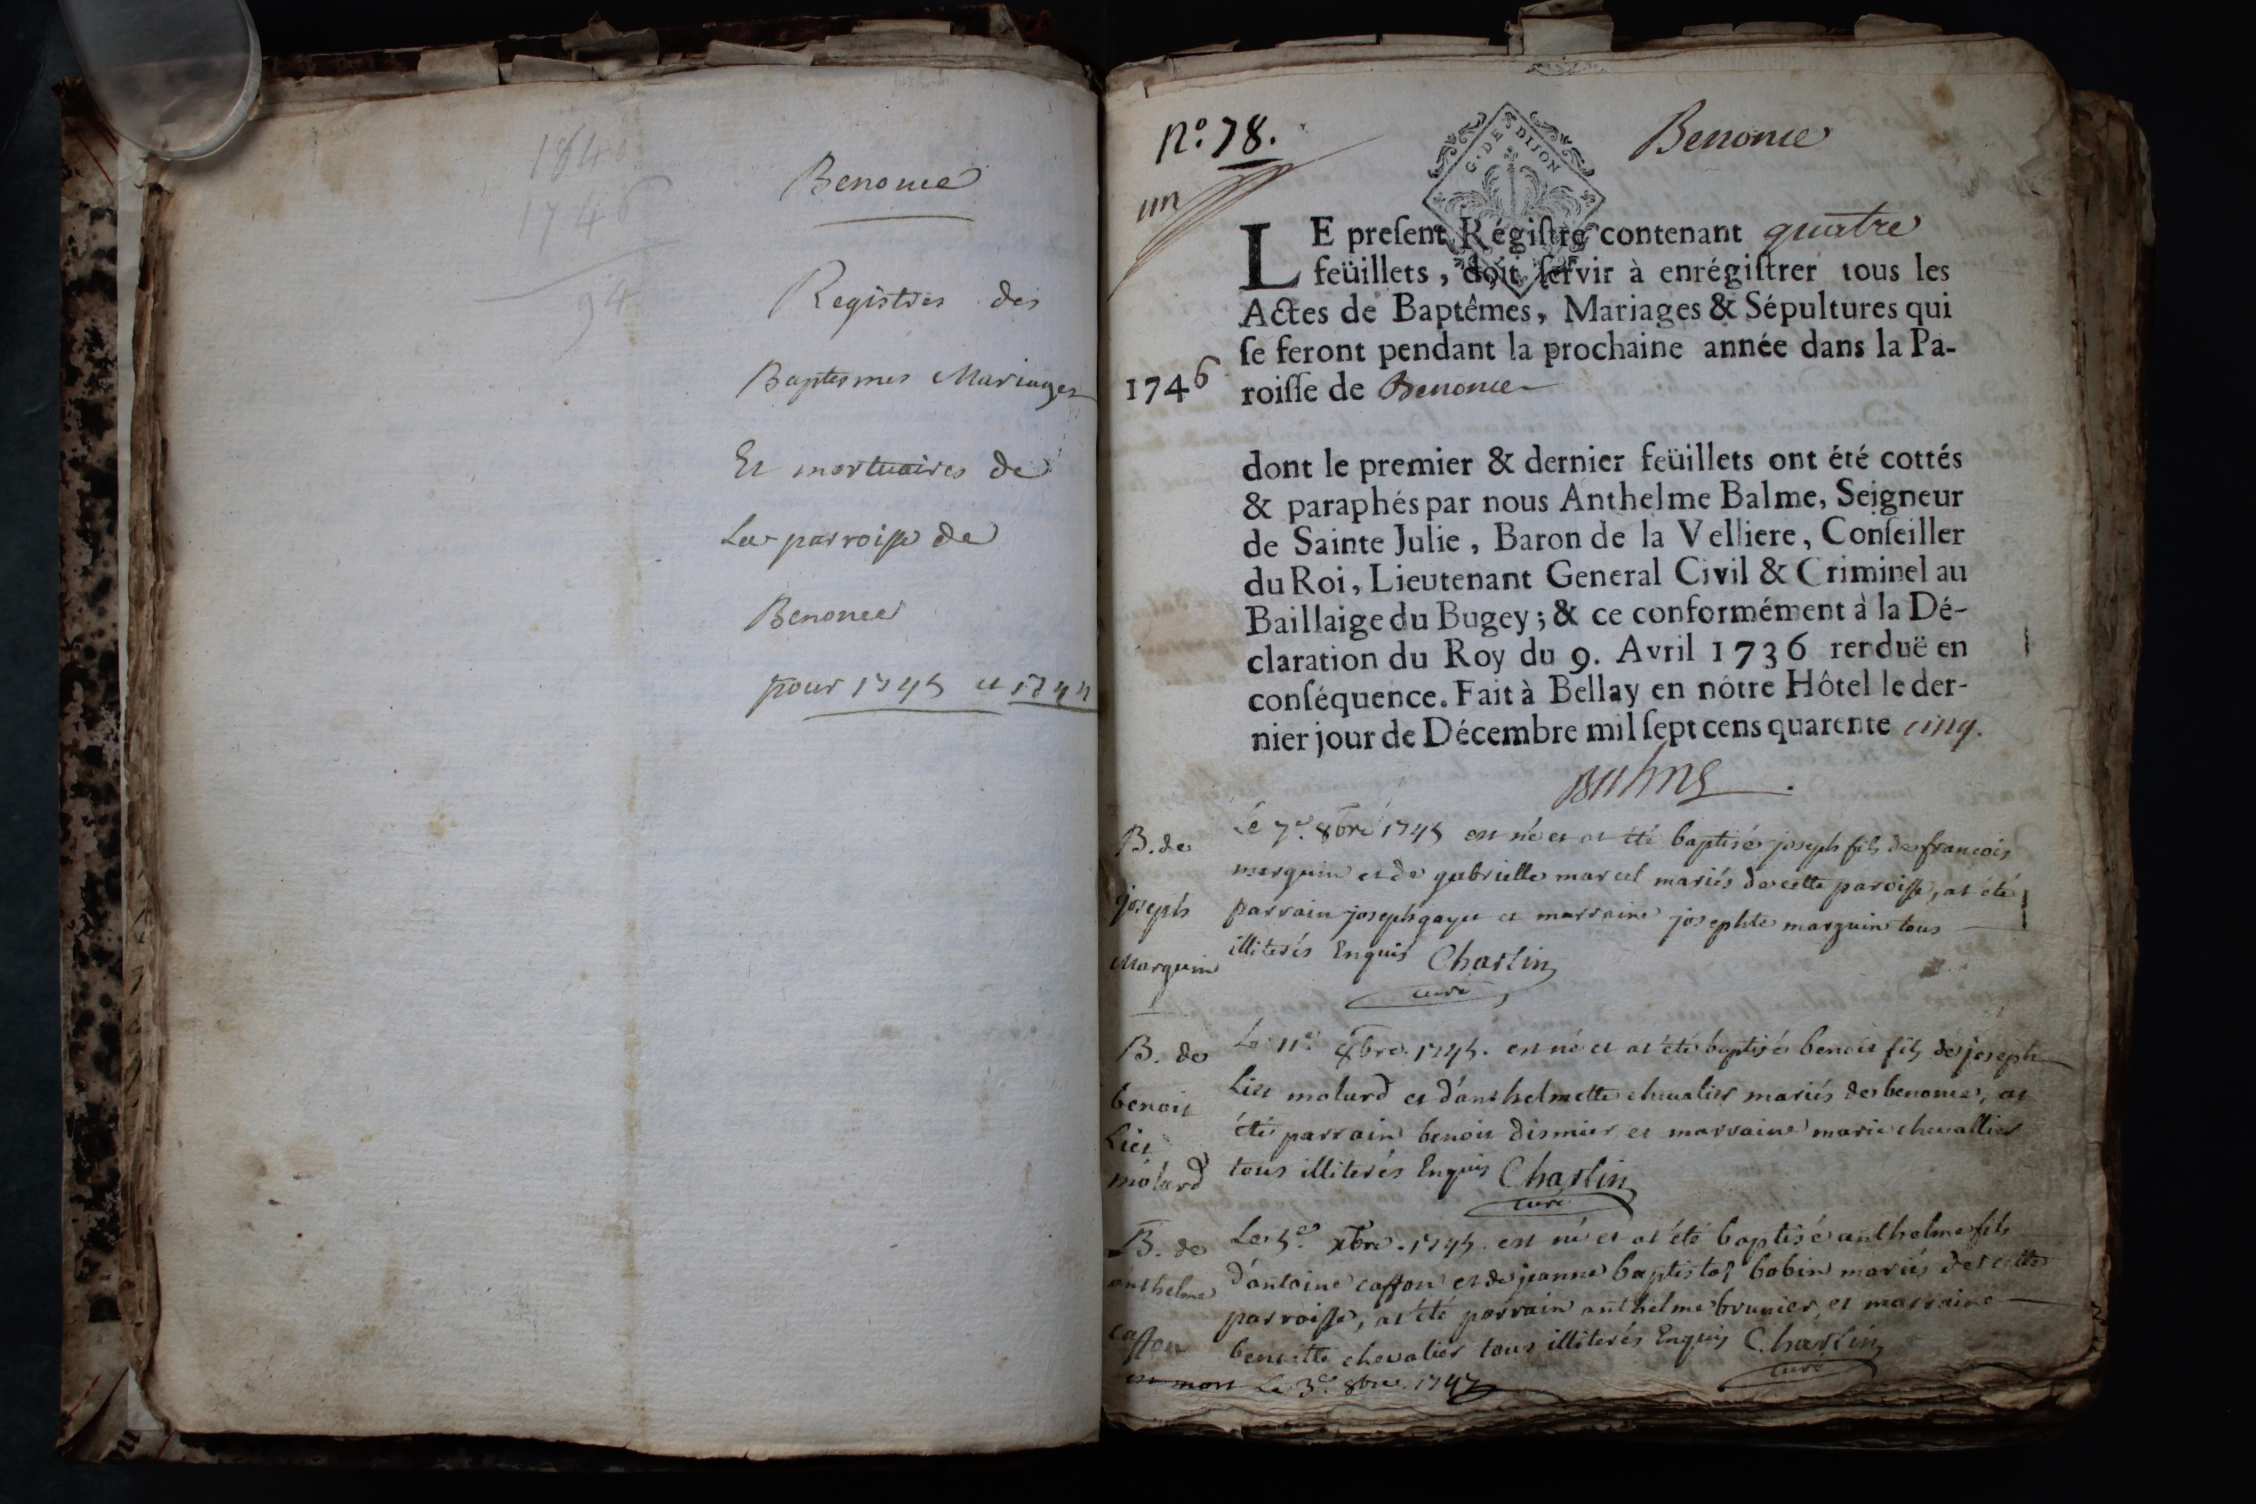 1840
1746
94
Benonce
Registres des
Baptesmes Mariages
Et mortuaires de
La parroisse de
Benonce
pour 1745 et
Benonce
N.º 78.
un
G. DE DIJON
LE preſent Régiſtre contenant quatre
feüillets, doit ſervir à enrégiſtrer tous les
Actes de Baptêmes, Mariages & Sépultures qui
ſe feront pendant la prochaine année dans la Pa-
1746 roiſſe de Benonce
dont le premier & dernier feüillets ont été cottés
& paraphés par nous Anthelme Balme, Seigneur
de Sainte Julie, Baron de la Velliere, Conſeiller
du Roi, Lieutenant General Civil & Criminel au
Baillaige du Bugey; & ce conformément à la Dé-
claration du Roy du 9. Avril 1736 renduë en
conſéquence. Fait à Bellay en nôtre Hôtel le der-
nier jour de Décembre mil ſept cens quarente cinq.
Balme
B. de
joseph
Marguin
Le 7.e 8bre 1745 est né et at été baptisé joseph fils de francois
marguin et de gabrielle marcel mariés de cette paroisse, at été
parrain joseph gayet et marraine josephte marguin tous
illiterés Enquis Charlin
curé
B. de
benoit
Liet
molard
Le 11.e 8bre. 1745. est né et at été baptisé benoit fils de joseph
Liet molard et d'anthelmette chevalier mariés de benonce, at
été parrain benoit dismier et marraine marie chevallier
tous illiterés Enquis Charlin
curé
B. de
anthelme
caffon
Le 5.e xbre. 1745. est né et at été baptisé anthelme fils
d'antoine caffon et de jeanne baptiste bobin mariés de cette
parroisse, at été parrain anthelme brunier, et marraine
benoitte chevalier tous illiterés Enquis Charlin
curé
est mort Le 3.e 8bre. 1747